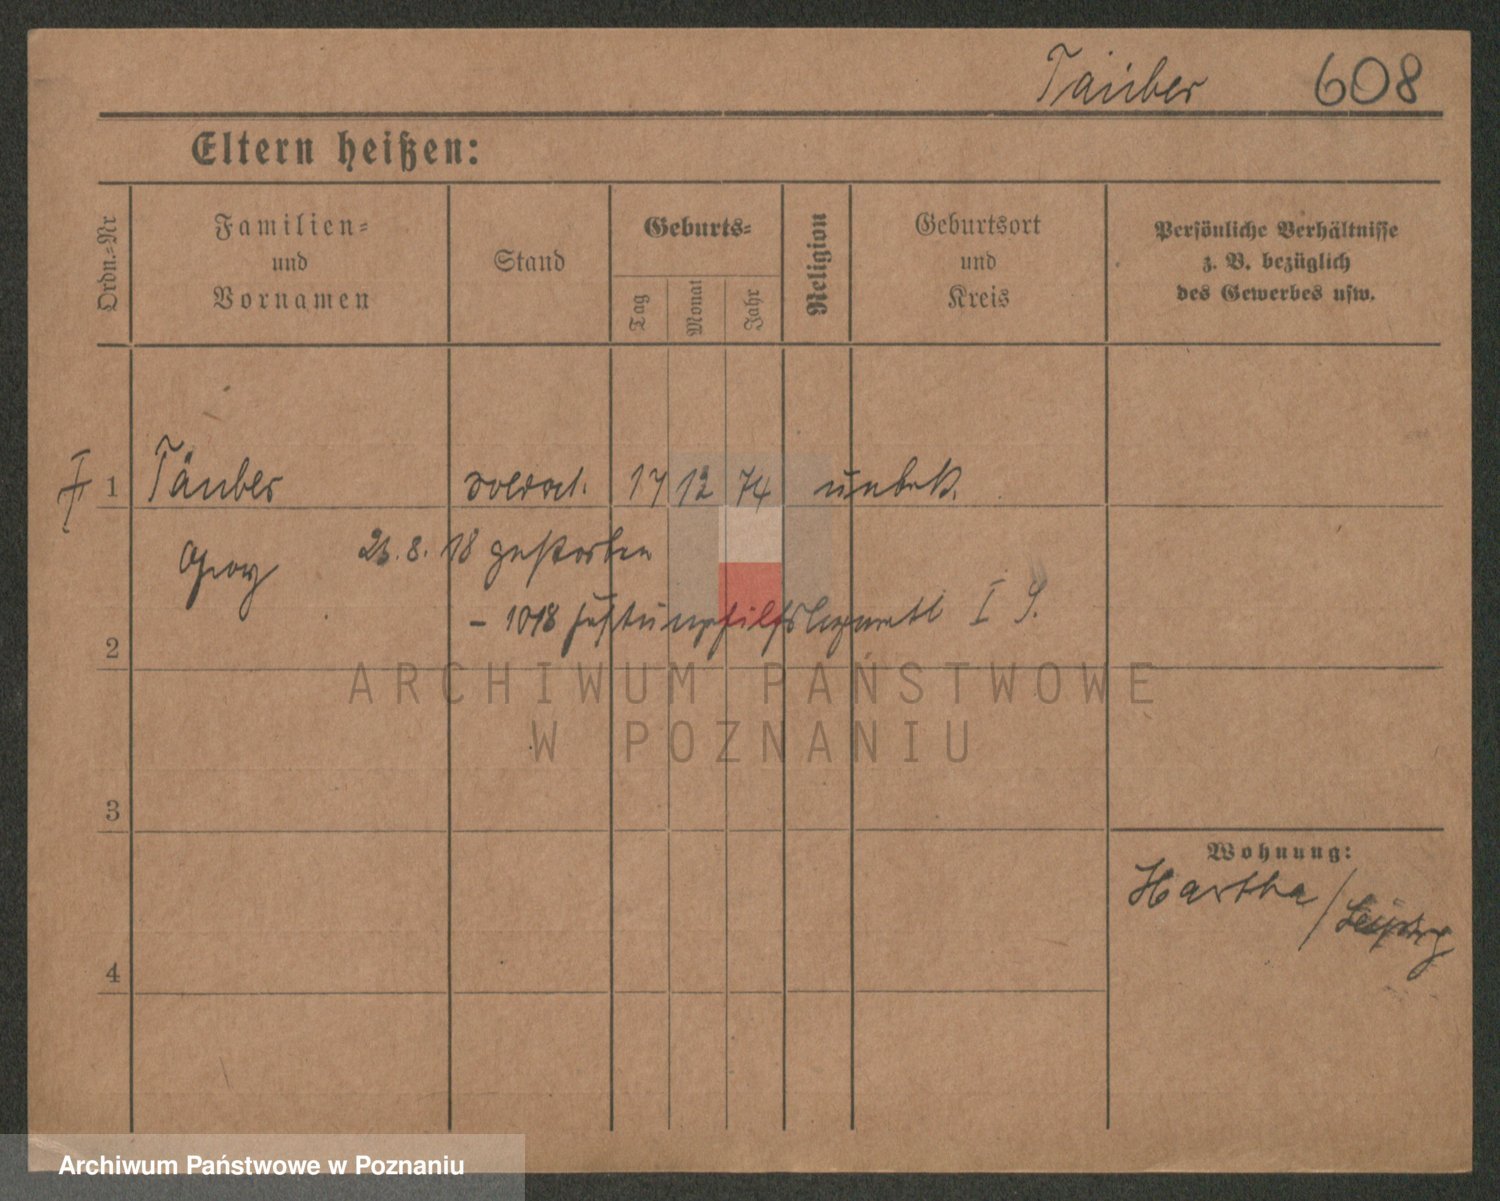 Täuber 608
Eltern heißen:
Ordn.-Nr
Familien-
und
Vornamen
Stand
Geburts-
Tag
Monat
Jahr
Religion
Geburtsort
und
Kreis
Persönliche Verhältnisse
z. B. bezüglich
des Gewerbes usw.
1 Täuber Soldat. 17 12 74 unbek.
Georg 23. 8. 18 gestorben
- 1018 Festungshilfslazarett I P.
2
ARCHIWUM PAŃSTWOWE
W POZNANIU
3
Wohnung:
Hartha / Leipzig
4
Archiwum Państwowe w Poznaniu